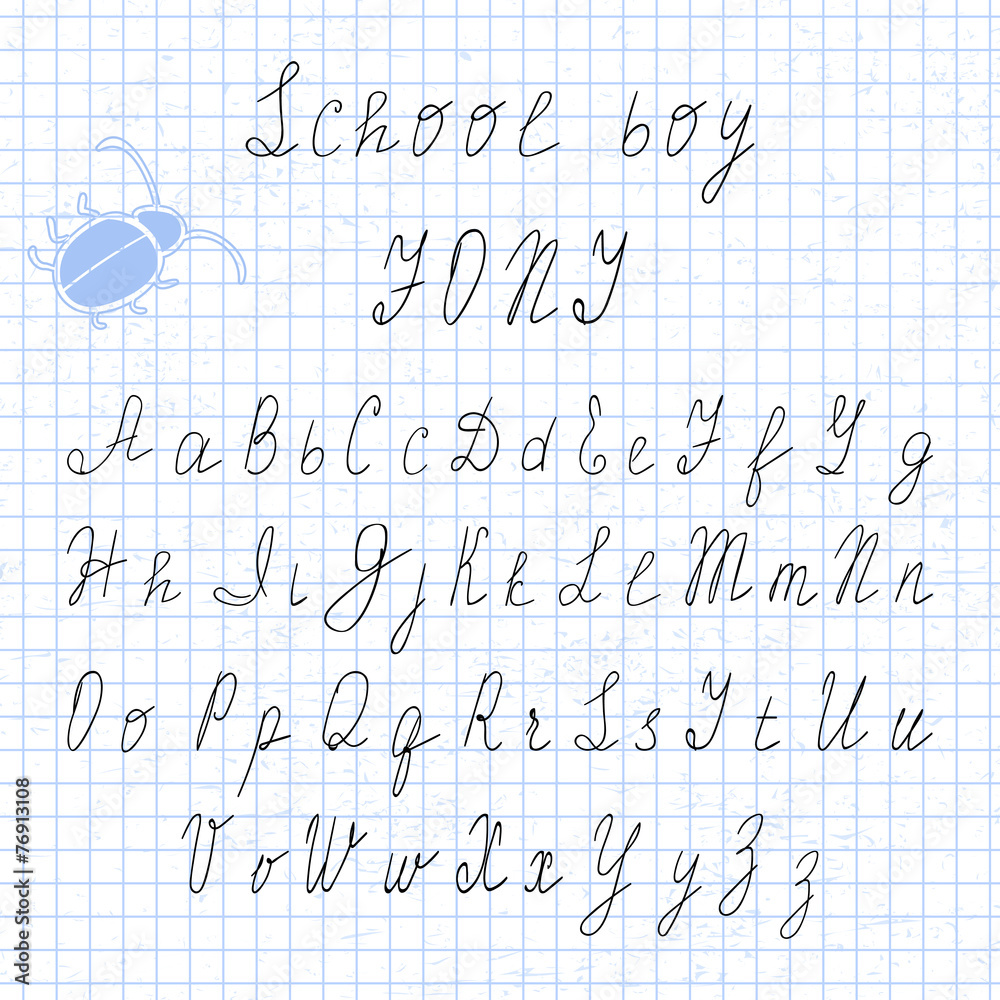 School boy
FONT
A a B b C c D d E e F f G g
H h I i J j K k L l M m N n
O o P p Q q R r S s T t U u
V v W w X x Y y Z z
Adobe Stock | #76913108